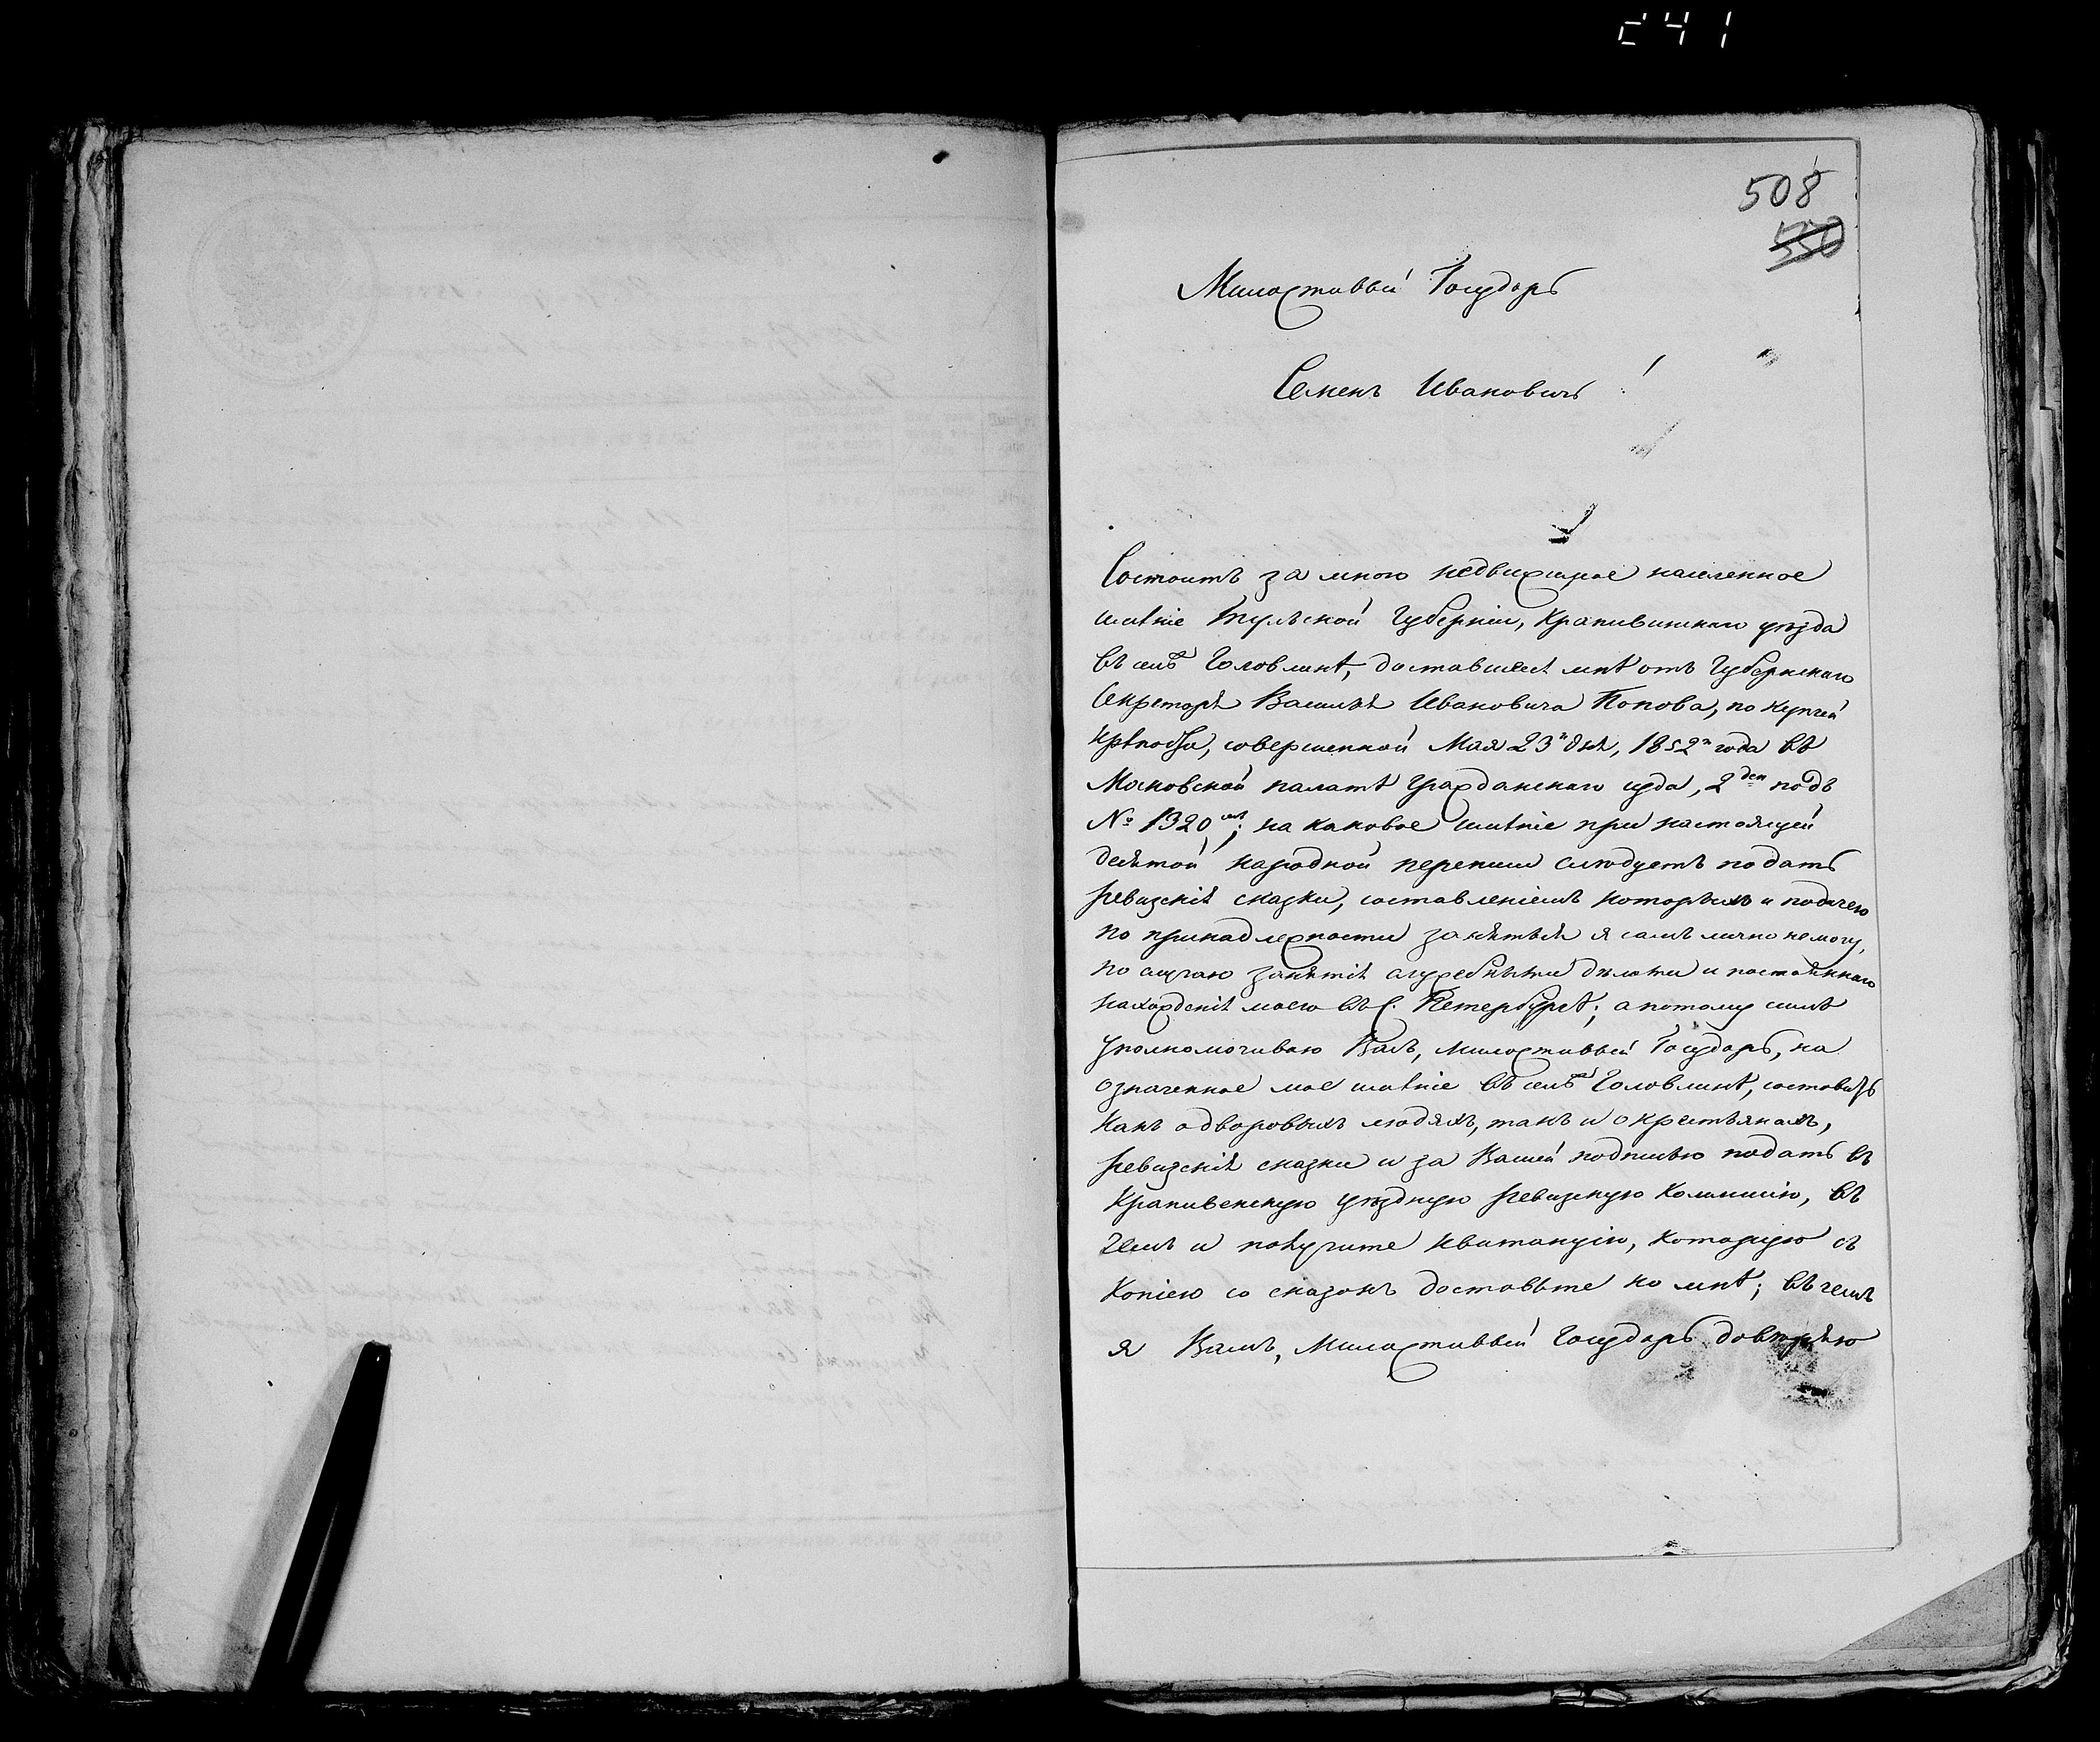 241
508
550
Милостивый Государь
Семенъ Ивановичь!
Состоитъ за мною недвижимое населенное
имѣніе Тульской Губерніи, Крапивинскаго уѣзда
въ селѣ Головлинѣ, доставшееся мнѣ отъ Губернскаго
Секретаря Василья Ивановича Попова, по купчей
крѣпости, совершенной Мая 23го дня, 1852го года въ
Московской палатѣ Гражданскаго суда, 2 деп подъ
№ 1320; на каковое имѣніе при настоящей
десятой народной переписи слѣдуетъ подать
ревизскія сказки, составленіемъ которыхъ и подачею
по принадлежности заняться я самъ лично немогу,
по случаю занятія служебными дѣлами и постояннаго
нахожденія моего въ С. Петербургѣ; а потому симъ
уполномочиваю Васъ, Милостивый Государь, на
означенное мое имѣніе въ селѣ Головлинѣ, составить
какъ о дворовыхъ людяхъ, такъ и о крестьянахъ,
ревизскія сказки и за Вашей подписью подать въ
Крапивенскую уѣздную ревизскую Коммисію, въ
чемъ и получите квитанцію, которую съ
копіею со сказокъ доставьте ко мнѣ; въ чемъ
я Вамъ, Милостивый Государь довѣряю